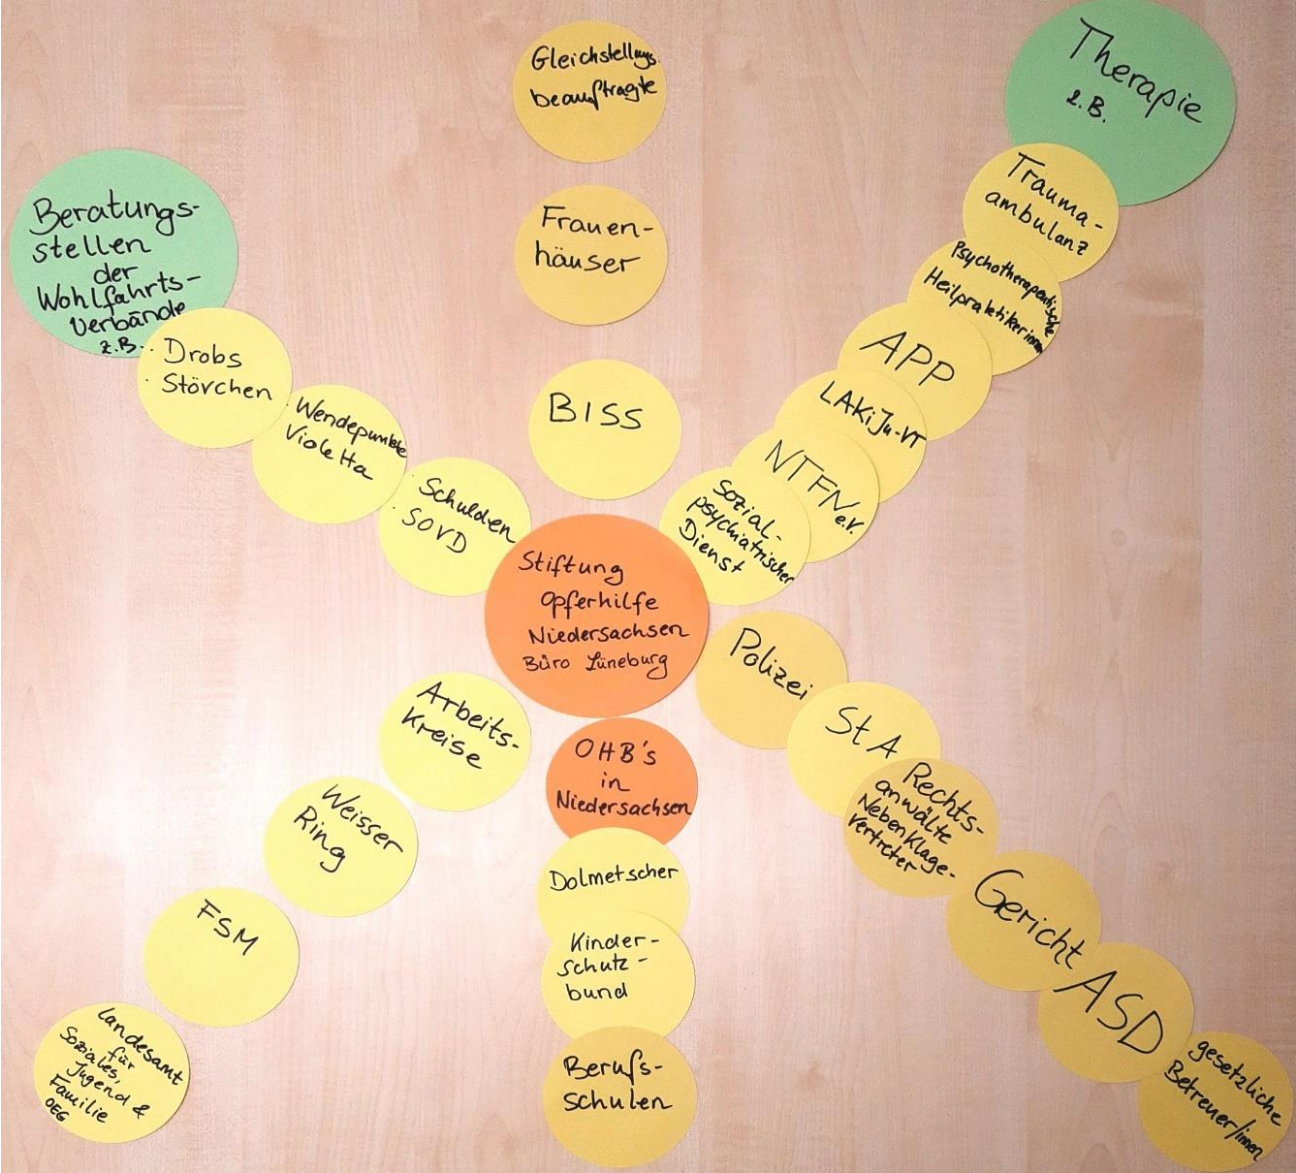 Gleichstellungs
beauftragte
Frauen-
häuser
BISS
Therapie
z.B.
Trauma-
ambulanz
Psychotherapeutische
Heilpraktikerinnen
APP
LAKiJu-VT
NTFN e.V.
Sozial-
psychiatrischer
Dienst
Beratungs-
stellen
der
Wohlfahrts-
verbände
z.B.
· Drobs
· Störchen
· Wendepunkte
Violetta
· Schulden
· SOVD
Stiftung
Opferhilfe
Niedersachsen
Büro Lüneburg
Polizei
StA
Rechts-
anwälte
Nebenklage-
vertreter
Gericht
ASD
gesetzliche
Betreuer/innen
Arbeits-
kreise
Weisser
Ring
FSM
Landesamt
für
Soziales,
Jugend &
Familie
OEG
OHB's
in
Niedersachsen
Dolmetscher
Kinder-
schutz-
bund
Berufs-
schulen